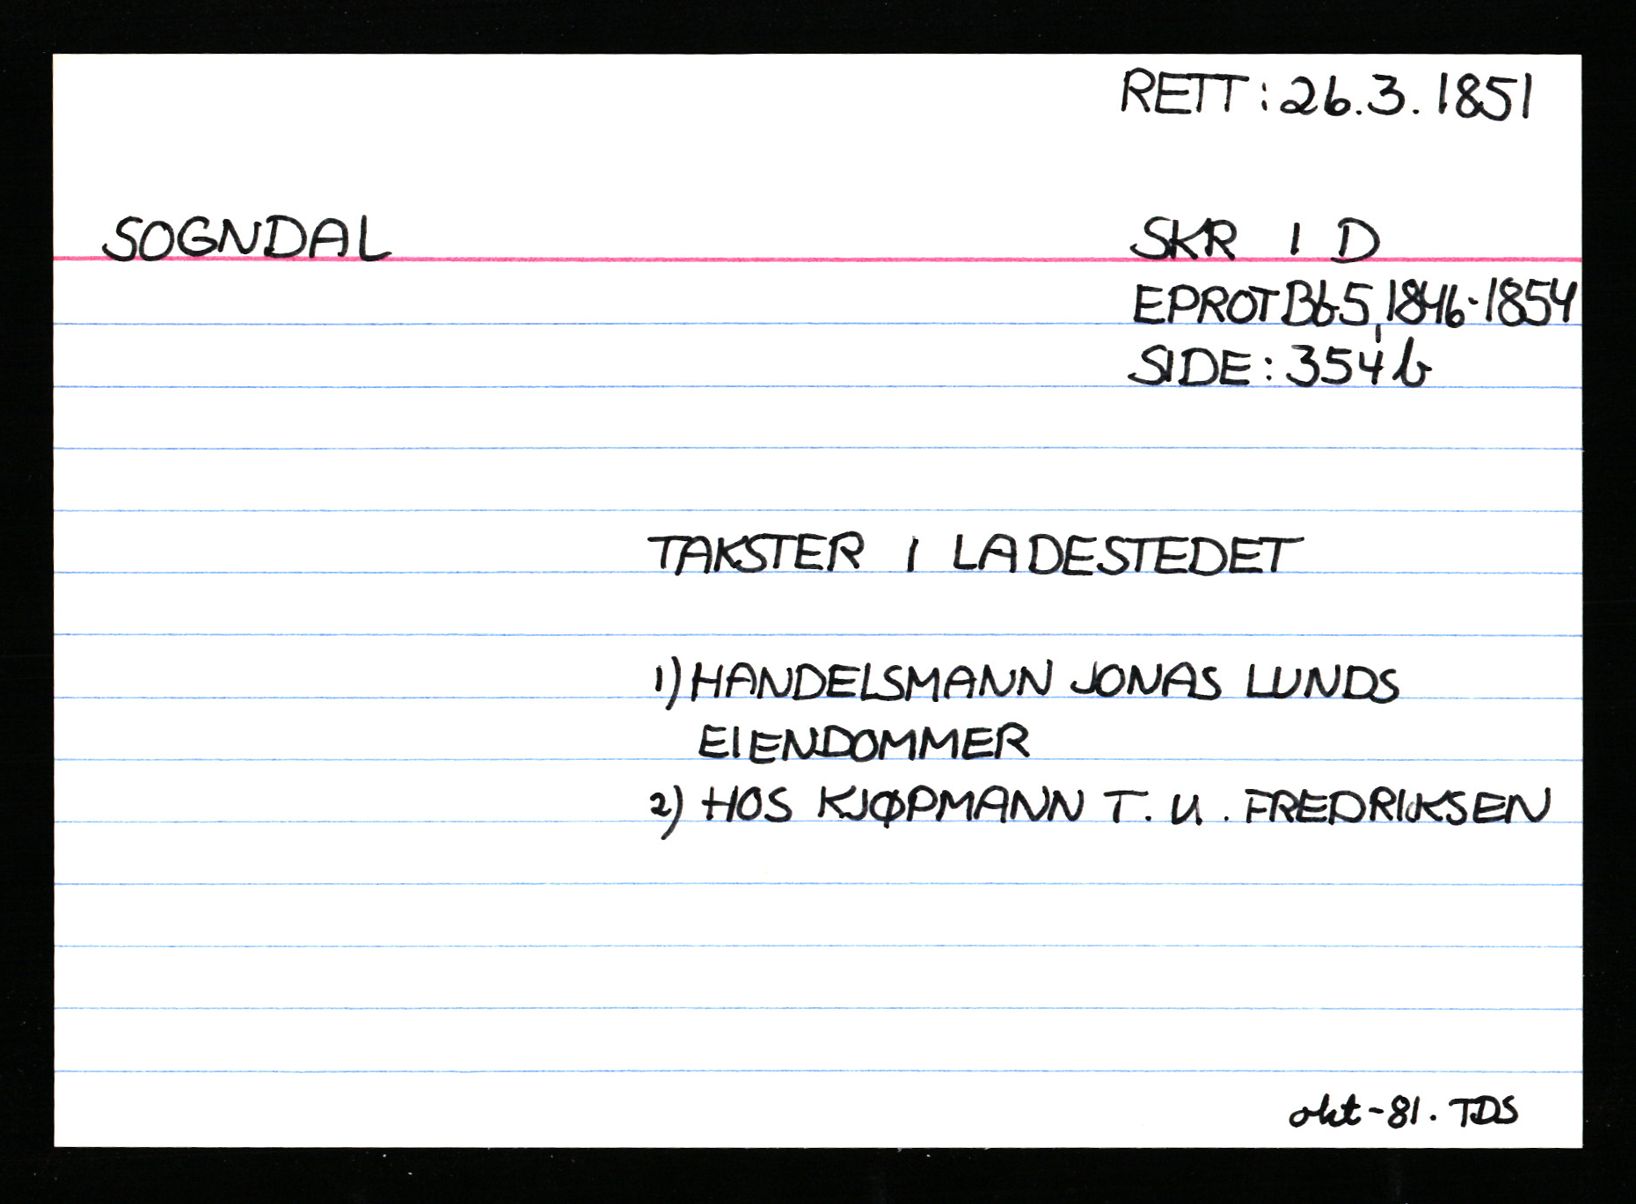 RETT: 26.3.1851
SOGNDAL
SKR I D
EPROT Bb5, 1846-1854
SIDE: 354b
TAKSTER I LADESTEDET
1) HANDELSMANN JONAS LUNDS
EIENDOMMER
2) HOS KJØPMANN T. U. FREDRIKSEN
okt-81. TDS